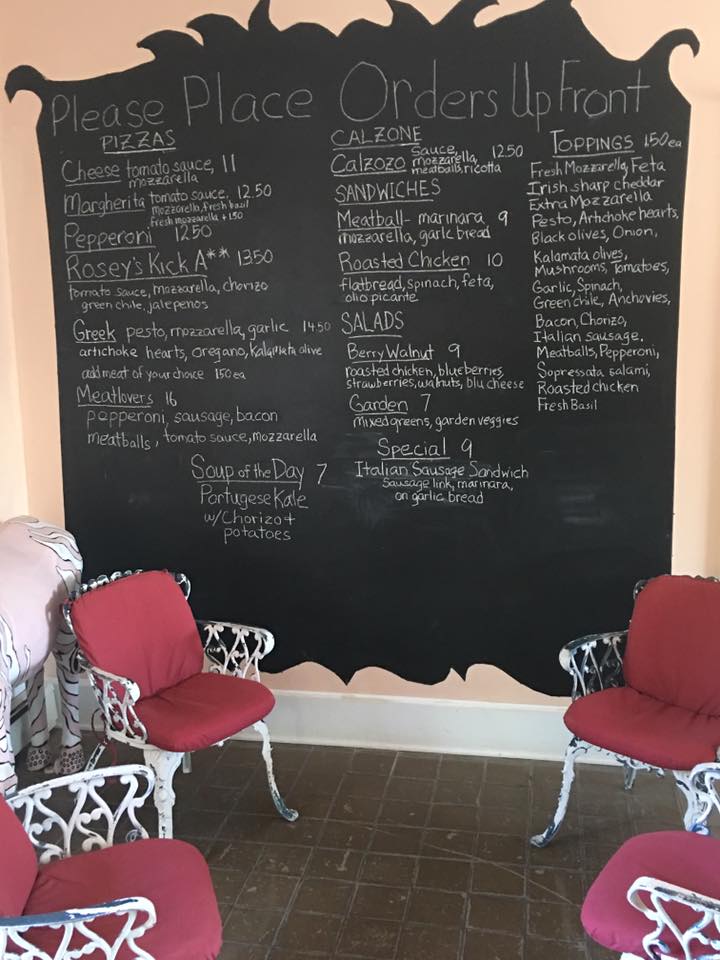 Please Place Orders Up Front
PIZZAS
Cheese tomato sauce, 11
mozzarella
Margherita tomato sauce, 12.50
mozzarella, fresh basil
Fresh mozzarella +1.50
Pepperoni 12.50
Rosey's Kick A** 13.50
tomato sauce, mozzarella, chorizo
green chile, jalepenos
Greek pesto, mozzarella, garlic 14.50
artichoke hearts, oregano, Kalamata olive
add meat of your choice 1.50 ea
Meatlovers 16
pepperoni, sausage, bacon
meatballs, tomato sauce, mozzarella
Soup of the Day 7
Portugese Kale
w/Chorizo +
potatoes
CALZONE
Calzozo sauce, 12.50
mozzarella,
meatballs, ricotta
SANDWICHES
Meatball- marinara 9
mozzarella, garlc bread
Roasted Chicken 10
flatbread, spinach, feta,
olio picante
SALADS
Berry Walnut 9
roasted chicken, blueberries,
strawberries, walnuts, blu cheese
Garden 7
mixed greens, garden veggies
Special 9
Italian Sausage Sandwich
Sausage link, marinara,
on garlic bread
TOPPINGS 1.50 ea
Fresh Mozzarella, Feta
Irish sharp cheddar
Extra Mozzarella
Pesto, Artichoke hearts,
Black olives, Onion,
Kalamata olives,
Mushrooms, Tomatoes,
Garlic, Spinach,
Green chile, Anchovies,
Bacon, Chorizo,
Italian Sausage,
Meatballs, Pepperoni,
Sopressata salami,
Roasted chicken
Fresh Basil